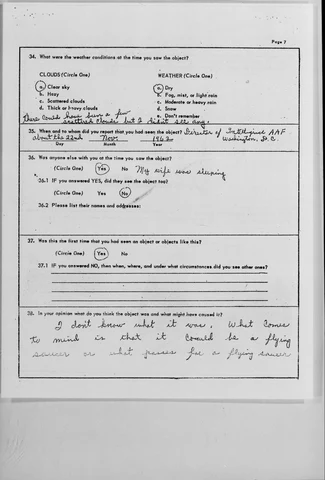 Page 7
34. What were the weather conditions at the time you saw the object?
CLOUDS (Circle One) WEATHER (Circle One)
a. Clear sky a. Dry
b. Hazy b. Fog, mist, or light rain
c. Scattered clouds c. Moderate or heavy rain
d. Thick or heavy clouds d. Snow
e. Don't remember
There could have been a few
scattered clouds but I didn't see any.
35. When and to whom did you report that you had seen the object? Director of Intelligence AAF
about the 22nd Nov. 1962 Washington, D.C.
Day Month Year
36. Was anyone else with you at the time you saw the object?
(Circle One) Yes No My wife was sleeping
36.1 IF you answered YES, did they see the object too?
(Circle One) Yes No
36.2 Please list their names and addresses:
37. Was this the first time that you had seen an object or objects like this?
(Circle One) Yes No
37.1 IF you answered NO, then when, where, and under what circumstances did you see other ones?
38. In your opinion what do you think the object was and what might have caused it?
I don't know what it was. What comes
to mind is that it could be a flying
saucer or what passes for a flying saucer